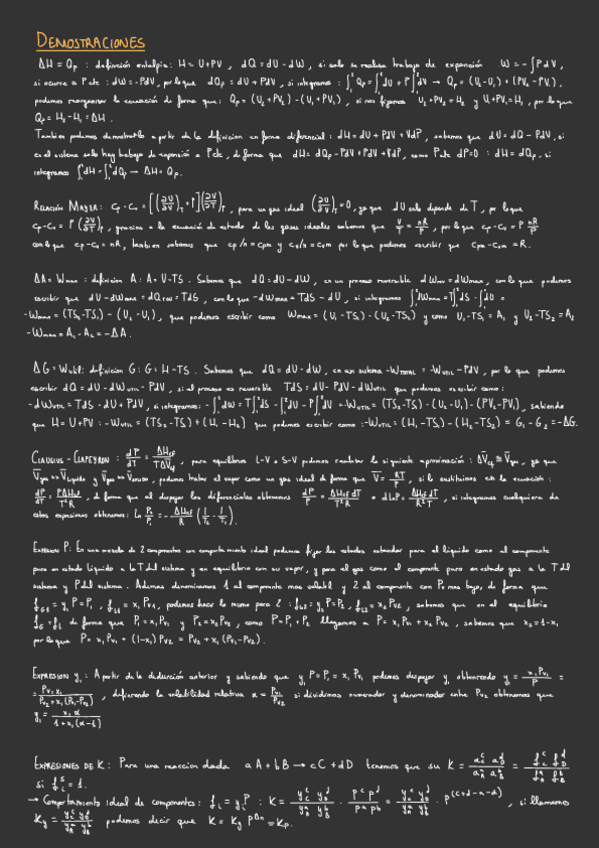 DEMOSTRACIONES
ΔH = Qp : definición entalpia: H = U+PV , dQ = dU - dW , si solo se realiza trabajo de expansión W = -∫PdV ,
si ocurre a P cte : dW = -PdV, por lo que dQp = dU + PdV , si integramos : ∫₁²Qp = ∫₁²dU + P∫₁²dV → Qp = (U₂-U₁) + (PV₂ - PV₁),
podemos reorganizar la ecuación de forma que: Qp = (U₂+PV₂) - (U₁+PV₁) , si nos fijamos U₂+PV₂ = H₂ y U₁+PV₁ = H₁ , por lo que
Qp = H₂-H₁ = ΔH .
Tambien podemos demostrarlo a partir de la definicion en forma diferencial : dH = dU + PdV + VdP , sabemos que dU = dQ - PdV, si
en el sistema solo hay trabajo de expansión a P cte, de forma que dH = dQp - PdV + PdV + VdP , como P cte dP=0 : dH = dQp , si
integramos ∫₁²dH = ∫₁²dQp → ΔH = Qp.
RELACIÓN MAYER: Cp-Cv = [(∂U/∂V)T + P](∂V/∂T)P , para un gas ideal (∂U/∂V)T = 0, ya que dU solo depende de T , por lo que
Cp-Cv = P (∂V/∂T)P , gracias a la ecuación de estado de los gases ideales sabemos que V/T = nR/P , por lo que Cp-Cv = P nR/P
con lo que Cp-Cv = nR, tambien sabemos que Cp/n = Cpm y Cv/n = Cvm por lo que podemos escribir que Cpm-Cvm = R.
ΔA = Wmax : definición A : A = U-TS . Sabemos que dQ = dU - dW , en un proceso reversible dWrev = dWmax , con lo que podemos
escribir que dU - dWmax = dQrev = TdS , con lo que -dWmax = TdS - dU , si integramos ∫₁²dWmax = T∫₁²dS - ∫₁²dU =
-Wmax = (TS₂-TS₁) - (U₂ - U₁) , que podemos escribir como Wmax = (U₁ - TS₁) - (U₂ - TS₂) y como U₁-TS₁ = A₁ y U₂-TS₂ = A₂
-Wmax = A₁ - A₂ = -ΔA .
ΔG = Wutil: definición G : G = H-TS . Sabemos que dQ = dU - dW , en un sistema -WTOTAL = -WUTIL - PdV , por lo que podemos
escribir dQ = dU - dWUTIL - PdV , si el proceso es reversible TdS = dU - PdV - dWUTIL que podemos escribir como :
-dWUTIL = TdS - dU + PdV , si integramos : -∫₁²dW = T∫₁²dS - ∫₁²dU - P∫₁²dV = -WUTIL = (TS₂-TS₁) - (U₂-U₁) - (PV₂-PV₁) , sabiendo
que H = U+PV : -WUTIL = (TS₂-TS₁) + (H₁ - H₂) que podemos escribir como : -WUTIL = (H₁-TS₁) - (H₂-TS₂) = G₁ - G₂ = -ΔG.
CLAUSIUS - CLAPEYRON : dP/dT = ΔHCF/TΔVCF , para equilibrios L-V o S-V podemos realizar la siguiente aproximación : ΔVcf ≅ Vgas , ya que
Vgas >> Vliquido y Vgas >> Vsolido , podemos tratar el vapor como un gas ideal de forma que V = RT/P , si lo sustituimos en la ecuación :
dP/dT = PΔHCF/T²R , de forma que al despejar los diferenciales obtenemos dP/P = ΔHCF dT/T²R o dLnP = ΔHCF dT/R²T , si integramos cualquiera de
estas expresiones obtenemos: Ln P₂/P₁ = -ΔHCF/R (1/T₂ - 1/T₁).
EXPRESIÓN P: En una mezcla de 2 componentes con comportamiento ideal podemos fijar los estados estandar para el liquido como el componente
puro en estado liquido a la T del sistema y en equilibrio con su vapor , y para el gas como el componente puro en estado gas a la T del
sistema y P del sistema . Ademas denominamos 1 al componente mas volatil y 2 al componente con Pv mas bajo, de forma que
fG1 = y₁P = P₁ , fL1 = x₁Pv₁ , podemos hacer lo mismo para 2 : fG2 = y₂P = P₂ , fL2 = x₂Pv₂ , sabemos que en el equilibrio
fG = fL de forma que P₁ = x₁Pv₁ y P₂ = x₂Pv₂ , como P = P₁+P₂ llegamos a P = x₁Pv₁ + x₂Pv₂ , sabemos que x₂ = 1-x₁
por lo que P = x₁Pv₁ + (1-x₁)Pv₂ = Pv₂ + x₁(Pv₁-Pv₂).
EXPRESION y₁ : A partir de la deducción anterior y sabiendo que y₁P = P₁ = x₁Pv₁ podemos despejar y₁ obteniendo y₁ = x₁Pv₁/P =
= Pv₁x₁/Pv₂+x₁(Pv₁-Pv₂) , definiendo la volatilidad relativa α = Pv₁/Pv₂ si dividimos numerador y denominador entre Pv₂ obtenemos que
y₁ = x₁α/1+x₁(α-1)
EXPRESIONES DE K : Para una reaccion dada aA + bB → cC + dD tenemos que su K = aCᶜ aDᵈ/aAᵃ aBᵇ = fCᶜ fDᵈ/fAᵃ fBᵇ
si fi° = 1.
→ Comportamiento ideal de componentes : fi = yiP : K = yCᶜ yDᵈ/yAᵃ yBᵇ · Pᶜ Pᵈ/Pᵃ Pᵇ = yCᶜ yDᵈ/yAᵃ yBᵇ · P^(c+d-a-b) , si llamamos
Ky = yCᶜ yDᵈ/yAᵃ yBᵇ podemos decir que K = Ky P^Δn = Kp.